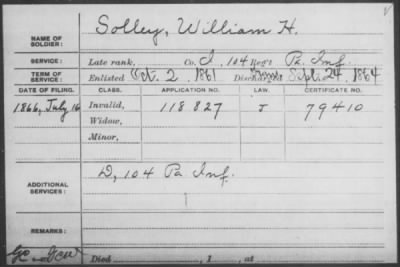 NAME OF SOLDIER: Solley, William H.
SERVICE: Late rank, Co. I, 104 Reg't Pa. Inf.
TERM OF SERVICE: Enlisted Oct. 2, 1861 Discharged Sept. 24, 1864
DATE OF FILING. CLASS. APPLICATION NO. LAW. CERTIFICATE NO.
1866, July 16 Invalid, 118827 J 79410
Widow,
Minor,
ADDITIONAL SERVICES: D, 104 Pa. Inf.
REMARKS:
Died , 1 , at